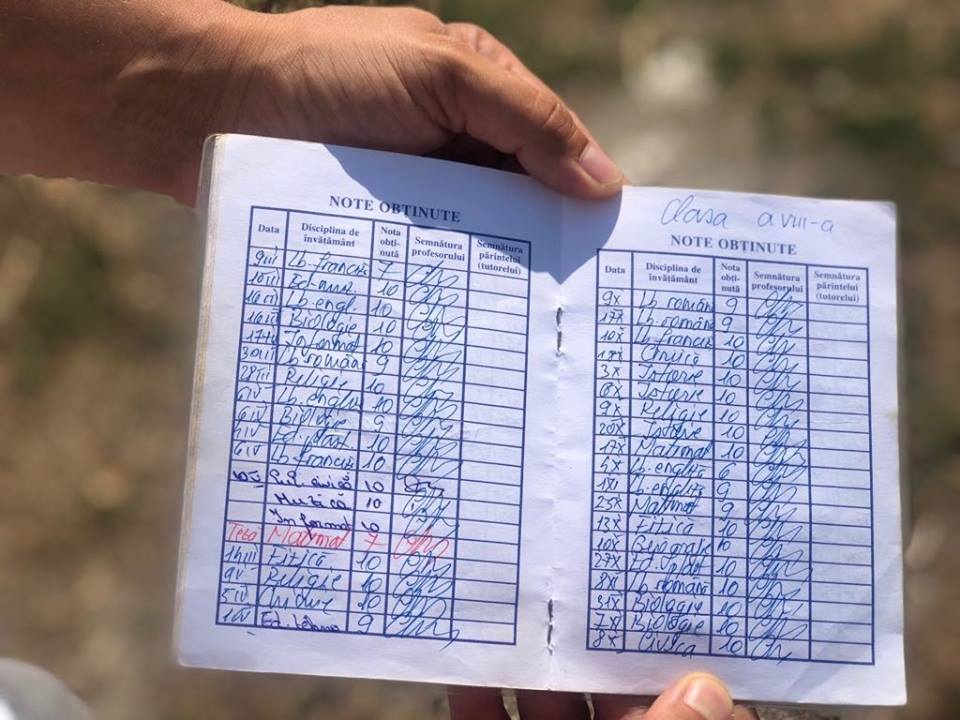 NOTE OBȚINUTE
Data Disciplina de învățământ Nota obți-nută Semnătura profesorului Semnătura părintelui (tutorelui)
9III Lb. franceză 7
Ed. muz. 10
Lb. engl. 10
Biologie 10
Informat 10
Lb. română 9
Religie 10
Lb. engleză 10
Biologie 9
Ed. plast 10
6IV Lb. franceză 10
civică 10
Muzică 10
Informat 10
Teză Matemat 7
Fizică 10
9V Religie 10
5IV 10
Ed. tehno 9
Clasa a VIII-a
NOTE OBȚINUTE
Data Disciplina de învățământ Nota obți-nută Semnătura profesorului Semnătura părintelui (tutorelui)
9X Lb. română 9
17X Lb. română 9
10X Lb. franceză 10
10
3X Istorie 10
8X Istorie 10
9X Religie 10
20X Istorie 10
17X Matemat 10
4X Lb. engleză 6
Lb. engleză 9
25X Matemat 9
13X Fizică 10
10X 10
27X Ed. plast 10
8XI Lb. română 10
31X Biologie 10
7X Biologie 10
8X Civica 10